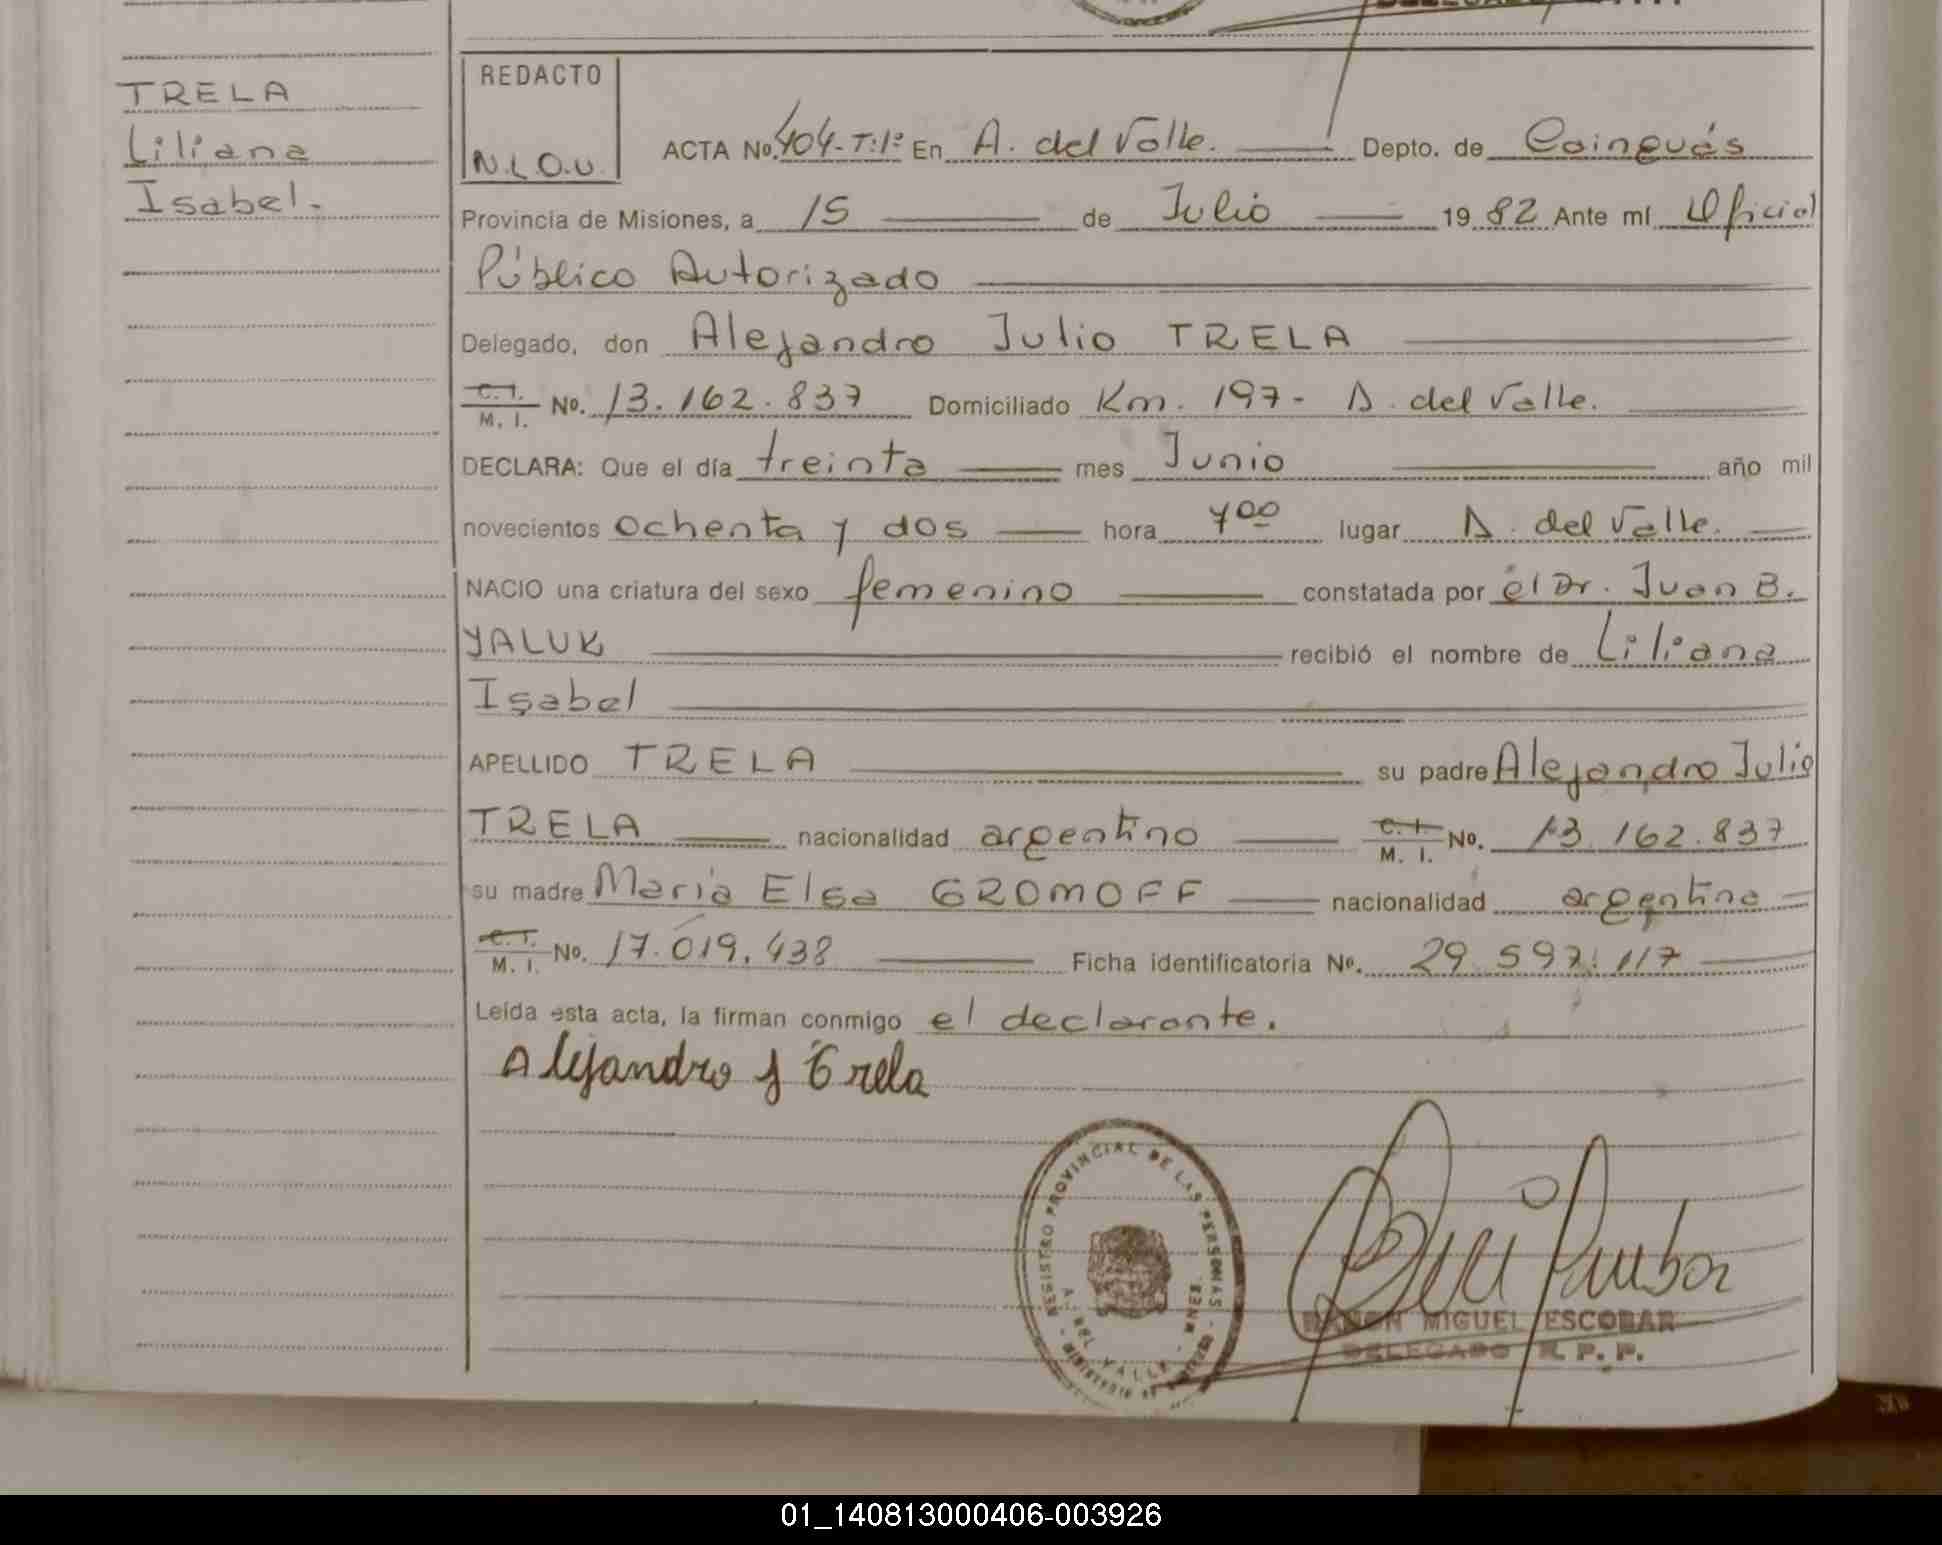 TRELA
Liliana
Isabel.
REDACTO
N.L.O.U.
ACTA No. 404-T:1º En A. del Valle. Depto. de Cainguás
Provincia de Misiones, a 15 de Julio 1982 Ante mí Oficial
Público Autorizado
Delegado, don Alejandro Julio TRELA
C.I. M. I. No. 13.162.837 Domiciliado Km. 197- A. del Valle.
DECLARA: Que el día treinta mes Junio año mil
novecientos ochenta y dos hora 400 lugar A. del Valle.
NACIO una criatura del sexo femenino constatada por el Dr. Juan B.
YALUK recibió el nombre de Liliana
Isabel
APELLIDO TRELA su padre Alejandro Julio
TRELA nacionalidad argentino C. I. M. I. No. 13.162.837
su madre Maria Elsa GROMOFF nacionalidad argentina
C.I. M. I. No. 17.019.438 Ficha identificatoria Nº. 29.597.117
Leída esta acta, la firman conmigo el declarante.
Alejandro J Trela
REGISTRO PROVINCIAL DE LAS PERSONAS
A. DEL VALLE - MNES.
RAMON MIGUEL ESCOBAR
DELEGADO R. P. P.
01_140813000406-003926